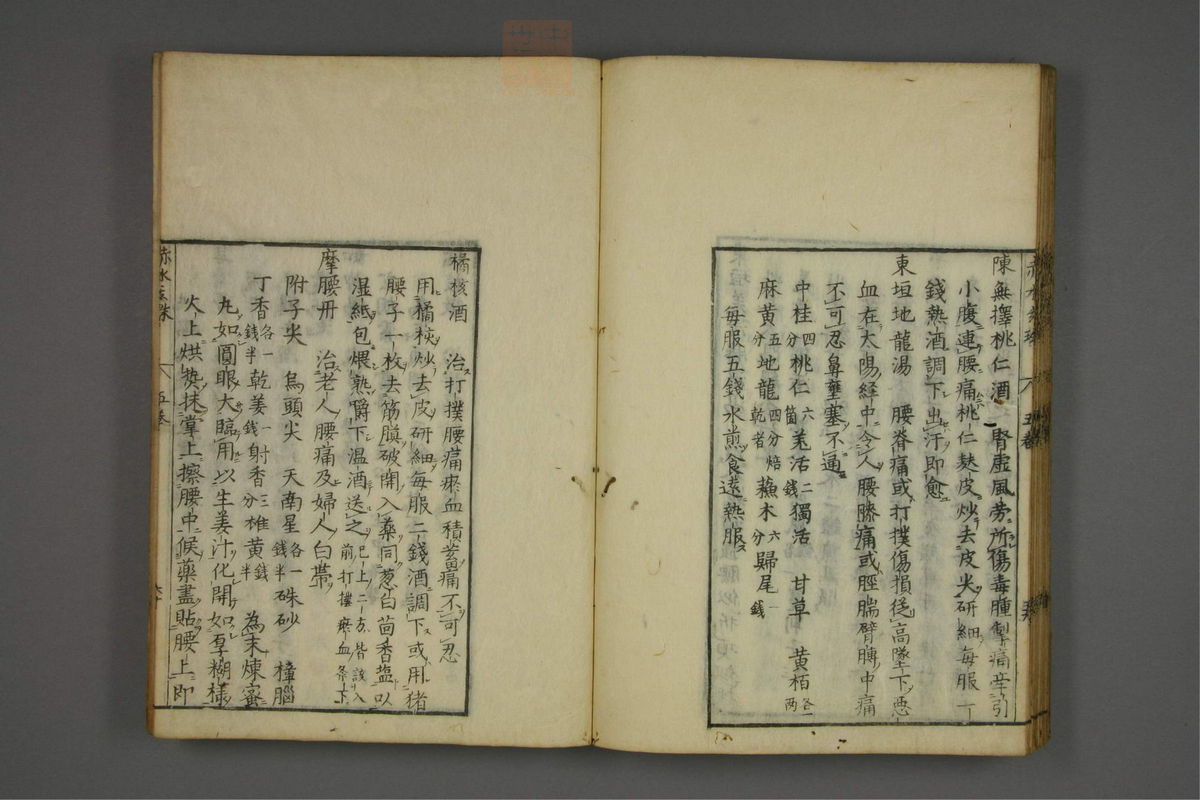 陳無擇桃仁酒 腎虛風勞所傷毒腫掣痛牽引
小腹連腰痛桃仁麩皮炒去皮尖研細每服一
錢熱酒調下出汗即愈
東垣地龍湯 腰脊痛或打撲傷損從高墜下惡
血在太陽経中令人腰膝痛或脛腨臂膊中痛
不可忍鼻壅塞不通
中桂四分桃仁六箇羌活二錢獨活 甘草 黃栢各一兩
麻黃五分地龍四分焙乾者蘓木六分歸尾一錢
每服五錢水煎食遠熱服
橘核酒 治打撲腰痛瘀血積蓄痛不可忍
用橘核炒去皮研細每服二錢酒調下或用猪
腰子一枚去筋膜破開入藥同葱白茴香盐以
湿紙包煨熟嚼下温酒送之已上二方皆該入前打撲瘀血条下
摩腰丹 治老人腰痛及婦人白帶
附子尖 烏頭尖 天南星各一錢半硃砂 樟腦
丁香各一錢半乾姜一錢射香三分雄黃半錢 為末煉蜜
丸如圓眼大臨用以生姜汁化開如厚糊様
火上烘热抹掌上擦腰中候藥盡貼腰上即
赤水玄珠 五巻